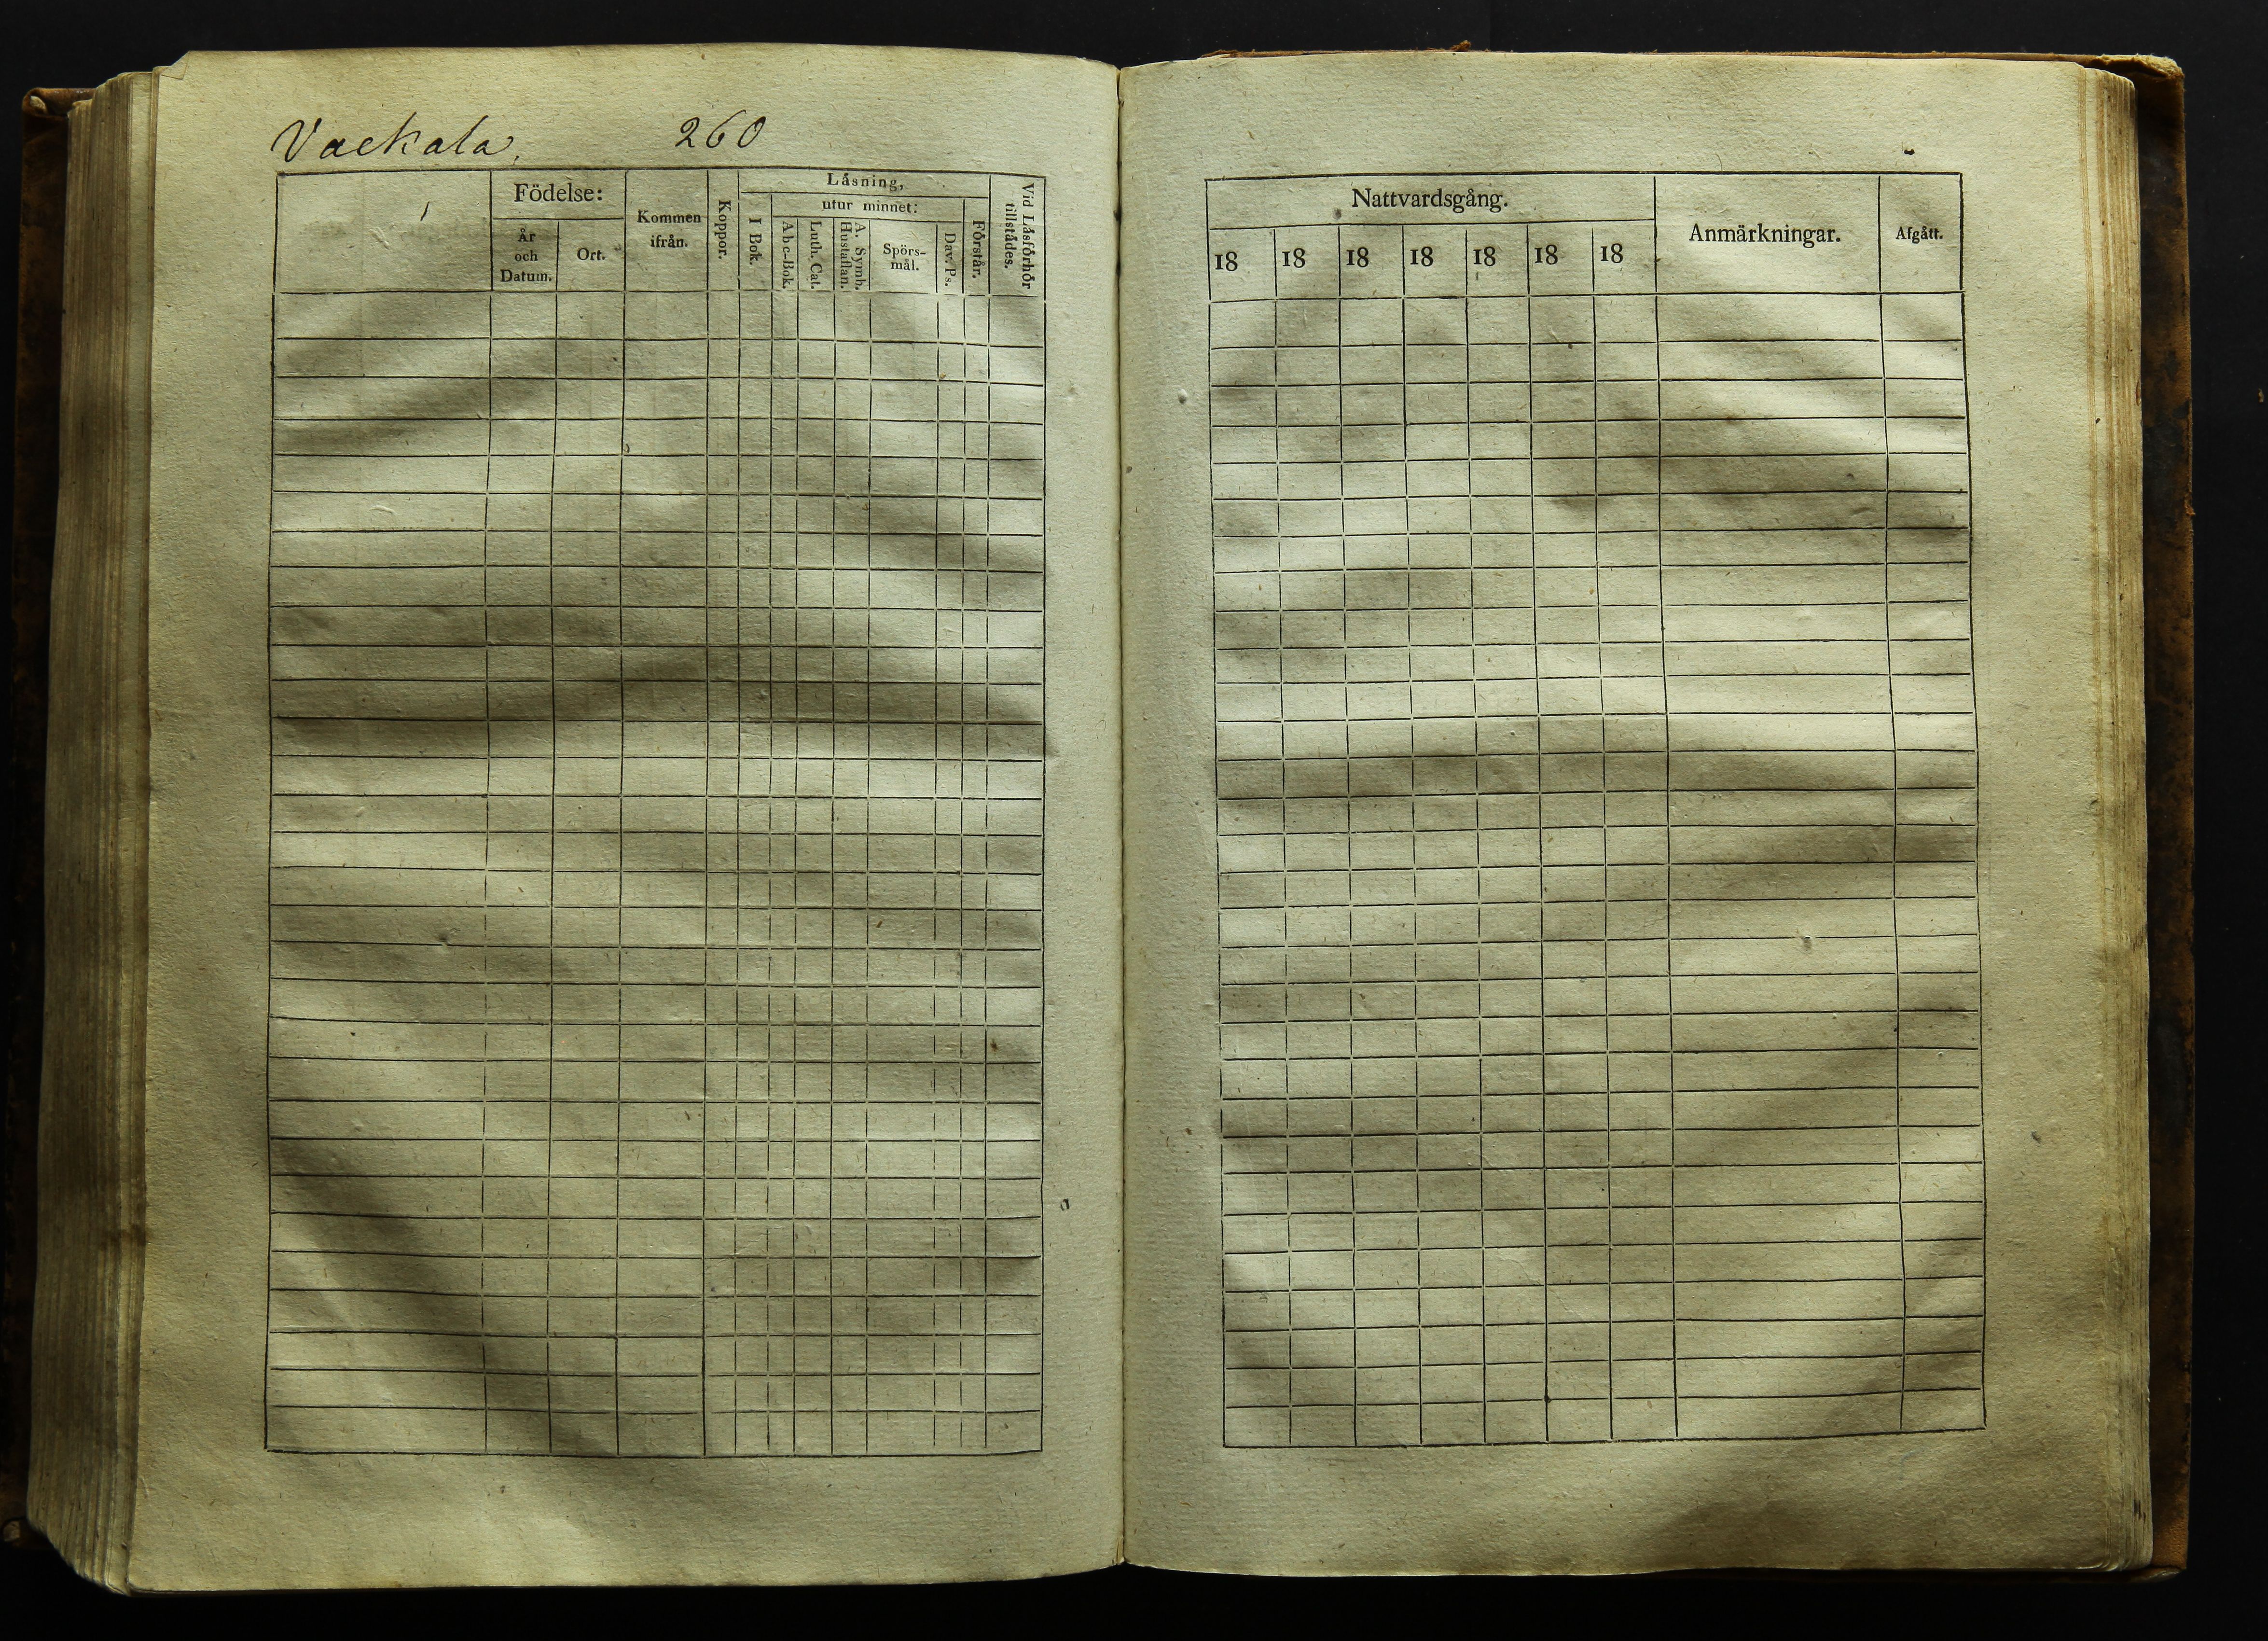 Vackala. 260
Födelse:
År
och
Datum.
Ort.
Kommen
ifrån.
Koppor.
Låsning,
I Bok.
utur minnet:
Abc-Bok.
Luth. Cat.
A. Symb.
Hustaflan.
Spörs-
mål.
Dav. Ps.
Förstår.
Vid Låsförhör
tillstådes.
Nattvardsgång.
18 18 18 18 18 18 18
Anmärkningar.
Afgått.